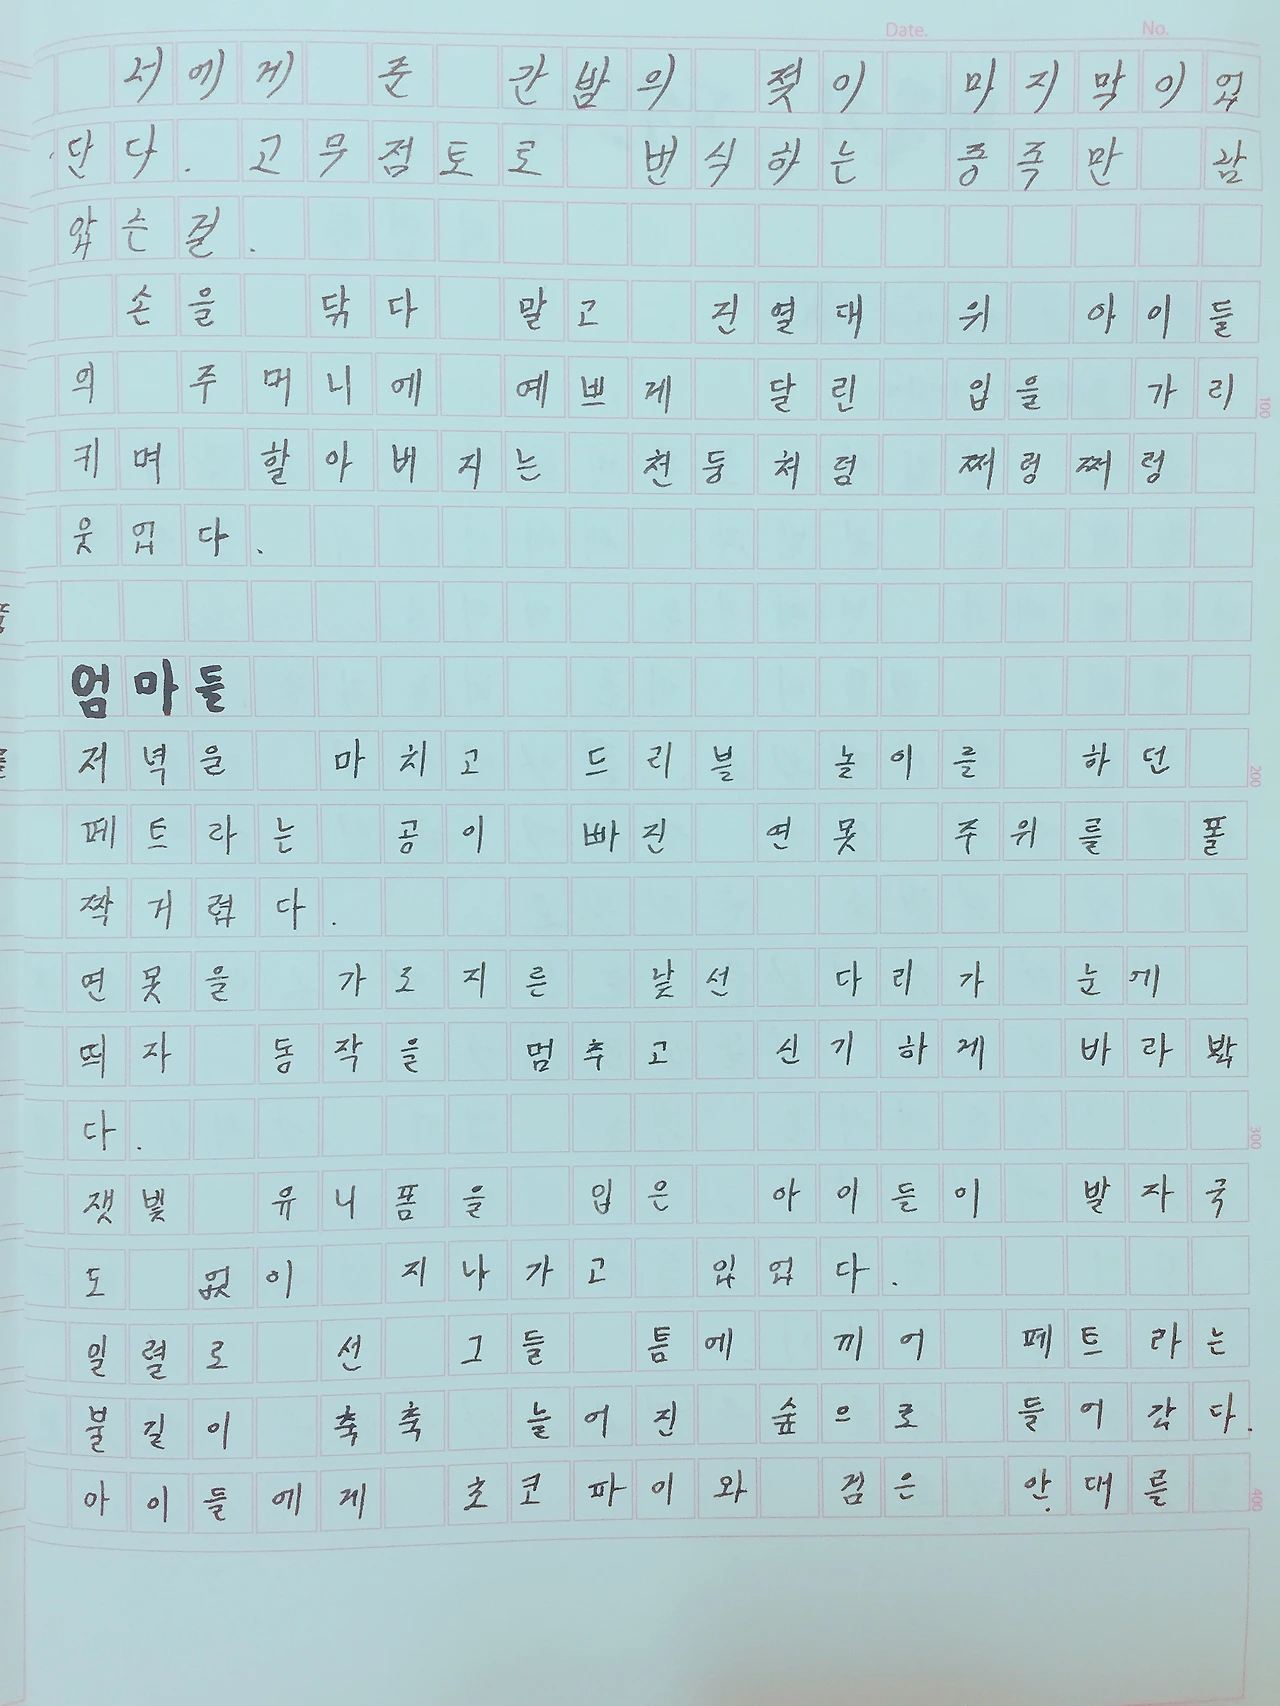 Date. No.
너에게 준 간밤의 젖이 마지막이었
단다. 고무점토로 번식하는 종족만 남
았는걸.
손을 닦다 말고 진열대 위 아이들
의 주머니에 예쁘게 달린 입을 가리
키며 할아버지는 천둥처럼 쩌렁쩌렁
웃었다.
엄마들
저녁을 마치고 드리블 놀이를 하던
페트라는 공이 빠진 연못 주위를 폴
짝거렸다.
연못을 가로지른 낯선 다리가 눈에
띄자 동작을 멈추고 신기하게 바라봤
다.
잿빛 유니폼을 입은 아이들이 발자국
도 없이 지나가고 있었다.
일렬로 선 그들 틈에 끼어 페트라는
불길이 축축 늘어진 숲으로 들어갔다.
아이들에게 초코파이와 검은 안대를
100
200
300
400